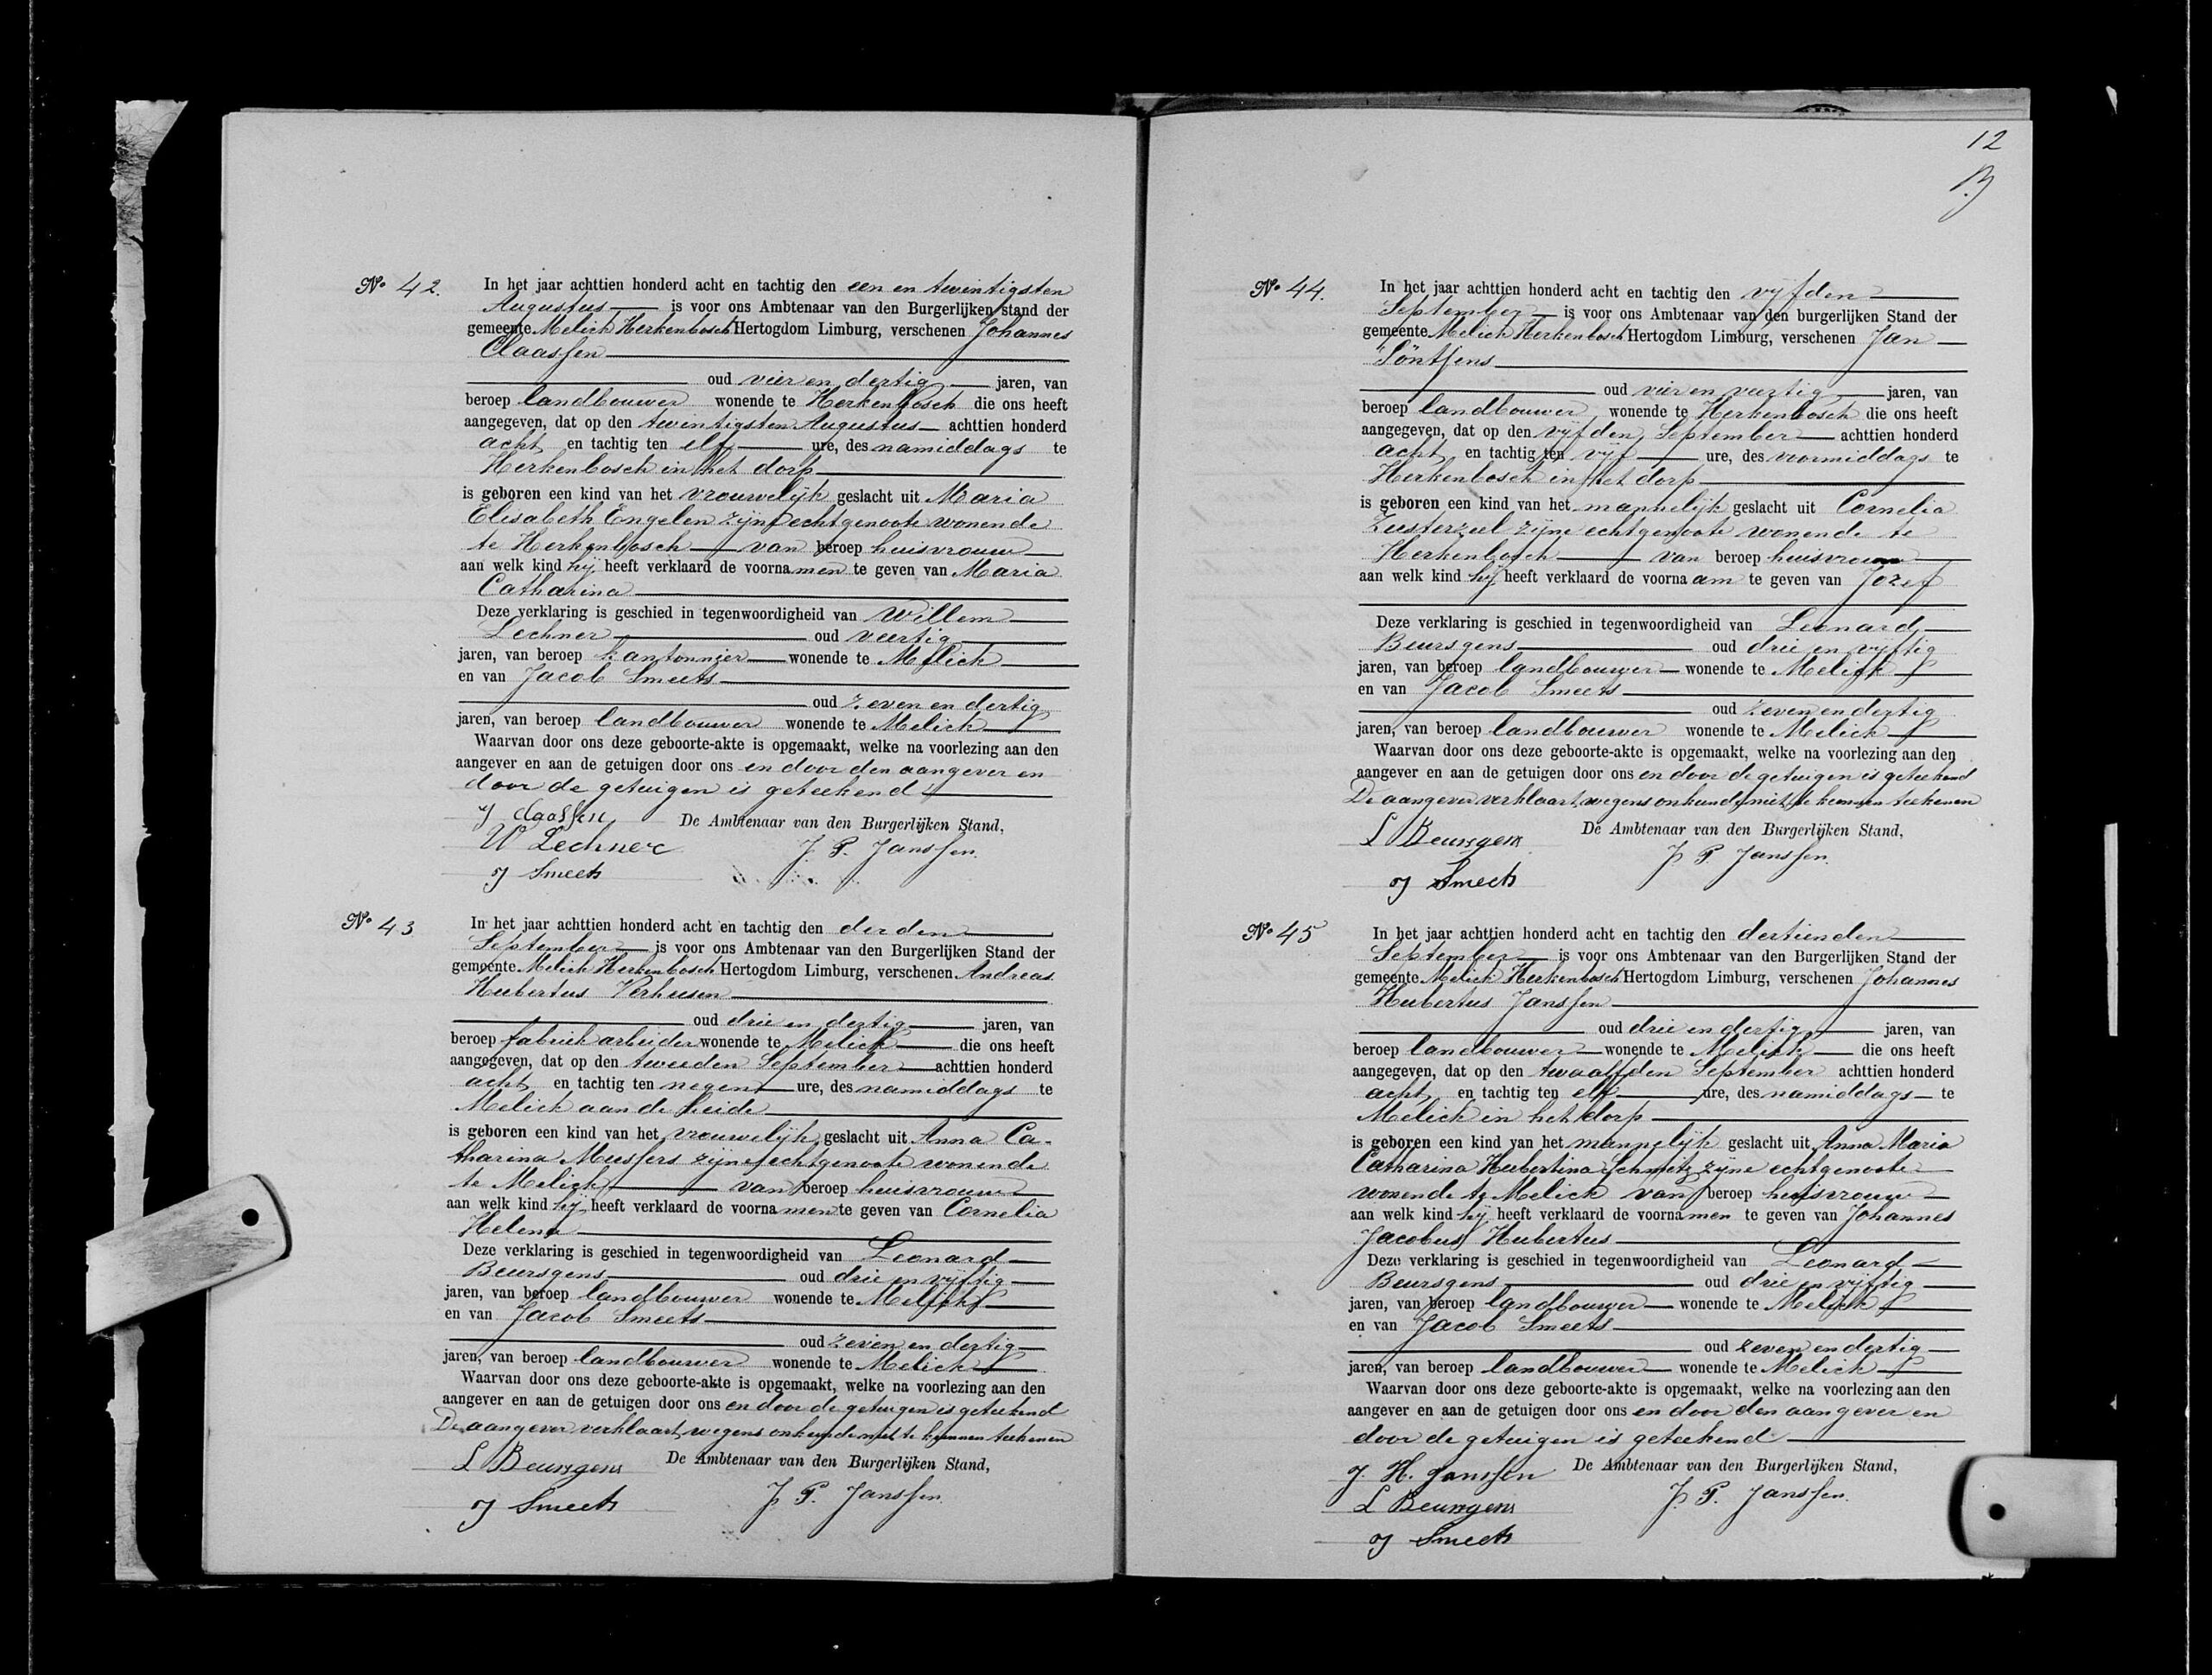 No 42.
In het jaar achttien honderd acht en tachtig den een en twintigsten
Augustus is voor ons Ambtenaar van den Burgerlijken stand der
gemeente Melick Herkenbosch Hertogdom Limburg, verschenen Johannes
Claassen
oud vier en dertig jaren, van
beroep landbouwer wonende te Herkenbosch die ons heeft
aangegeven, dat op den twintigsten Augustus achttien honderd
acht en tachtig ten elf ure, des namiddags te
Herkenbosch in het dorp
is geboren een kind van het vrouwelijk geslacht uit Maria
Elisabeth Engelen zijne echtgenoote wonende
te Herkenbosch van beroep huisvrouw
aan welk kind hij heeft verklaard de voornamen te geven van Maria
Catharina
Deze verklaring is geschied in tegenwoordigheid van Willem
Lechner oud veertig
jaren, van beroep kantonnier wonende te Melick
en van Jacob Smeets
oud zeven en dertig
jaren, van beroep landbouwer wonende te Melick
Waarvan door ons deze geboorte-akte is opgemaakt, welke na voorlezing aan den
aangever en aan de getuigen door ons en door den aangever en
door de getuigen is geteekend
J Claassen
De Ambtenaar van den Burgerlijken Stand,
W Lechner
J. P. Janssen.
J Smeets
No 43
In het jaar achttien honderd acht en tachtig den derden
September is voor ons Ambtenaar van den Burgerlijken Stand der
gemeente Melick Herkenbosch Hertogdom Limburg, verschenen Andreas
Hubertus Verheesen
oud drie en dertig jaren, van
beroep fabriekarbeider wonende te Melick die ons heeft
aangegeven, dat op den tweeden September achttien honderd
acht en tachtig ten negen ure, des namiddags te
Melick aan de heide
is geboren een kind van het vrouwelijk geslacht uit Anna Ca-
tharina Meussers zijne echtgenoote wonende
te Melick van beroep huisvrouw
aan welk kind hij heeft verklaard de voornamen te geven van Cornelia
Helena
Deze verklaring is geschied in tegenwoordigheid van Leonard
Beursgens oud drie en vijftig
jaren, van beroep landbouwer wonende te Melick
en van Jacob Smeets
oud zeven en dertig
jaren, van beroep landbouwer wonende te Melick
Waarvan door ons deze geboorte-akte is opgemaakt, welke na voorlezing aan den
aangever en aan de getuigen door ons en door de getuigen is geteekend
De aangever verklaart wegens onkunde niet te kunnen teekenen
L Beursgens
De Ambtenaar van den Burgerlijken Stand,
J Smeets
J. P. Janssen.
12
No 44.
In het jaar achttien honderd acht en tachtig den vijfden
September is voor ons Ambtenaar van den burgerlijken Stand der
gemeente Melick Herkenbosch Hertogdom Limburg, verschenen Jan
Söntjens
oud vier en veertig jaren, van
beroep landbouwer wonende te Herkenbosch die ons heeft
aangegeven, dat op den vijfden September achttien honderd
acht en tachtig ten vijf ure, des voormiddags te
Herkenbosch in het dorp
is geboren een kind van het mannelijk geslacht uit Cornelia
Zusterzeel zijne echtgenoote wonende te
Herkenbosch van beroep huisvrouw
aan welk kind hij heeft verklaard de voornaam te geven van Jozef
Deze verklaring is geschied in tegenwoordigheid van Leonard
Beursgens oud drie en vijftig
jaren, van beroep landbouwer wonende te Melick
en van Jacob Smeets
oud zeven en dertig
jaren, van beroep landbouwer wonende te Melick
Waarvan door ons deze geboorte-akte is opgemaakt, welke na voorlezing aan den
aangever en aan de getuigen door ons en door de getuigen is geteekend
De aangever verklaart wegens onkunde niet te kunnen teekenen
L Beursgens
De Ambtenaar van den Burgerlijken Stand,
J. P. Janssen.
J Smeets
No 45
In het jaar achttien honderd acht en tachtig den dertienden
September is voor ons Ambtenaar van den Burgerlijken Stand der
gemeente Melick Herkenbosch Hertogdom Limburg, verschenen Johannes
Hubertus Janssen
oud drie en dertig jaren, van
beroep landbouwer wonende te Melick die ons heeft
aangegeven, dat op den twaalfden September achttien honderd
acht en tachtig ten elf ure, des namiddags te
Melick in het dorp
is geboren een kind van het mannelijk geslacht uit Anna Maria
Catharina Hubertina Schmitz zijne echtgenoote
wonende te Melick van beroep huisvrouw
aan welk kind hij heeft verklaard de voornamen te geven van Johannes
Jacobus Hubertus
Deze verklaring is geschied in tegenwoordigheid van Leonard
Beursgens oud drie en vijftig
jaren, van beroep landbouwer wonende te Melick
en van Jacob Smeets
oud zeven en dertig
jaren, van beroep landbouwer wonende te Melick
Waarvan door ons deze geboorte-akte is opgemaakt, welke na voorlezing aan den
aangever en aan de getuigen door ons en door den aangever en
door de getuigen is geteekend
J. H. Janssen
De Ambtenaar van den Burgerlijken Stand,
L Beursgens
J. P. Janssen.
J Smeets